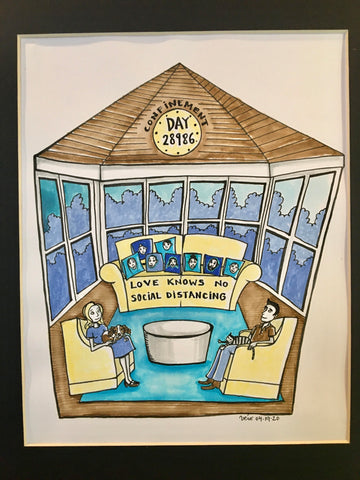 CONFINEMENT
DAY
28986
LOVE KNOWS NO
SOCIAL DISTANCING